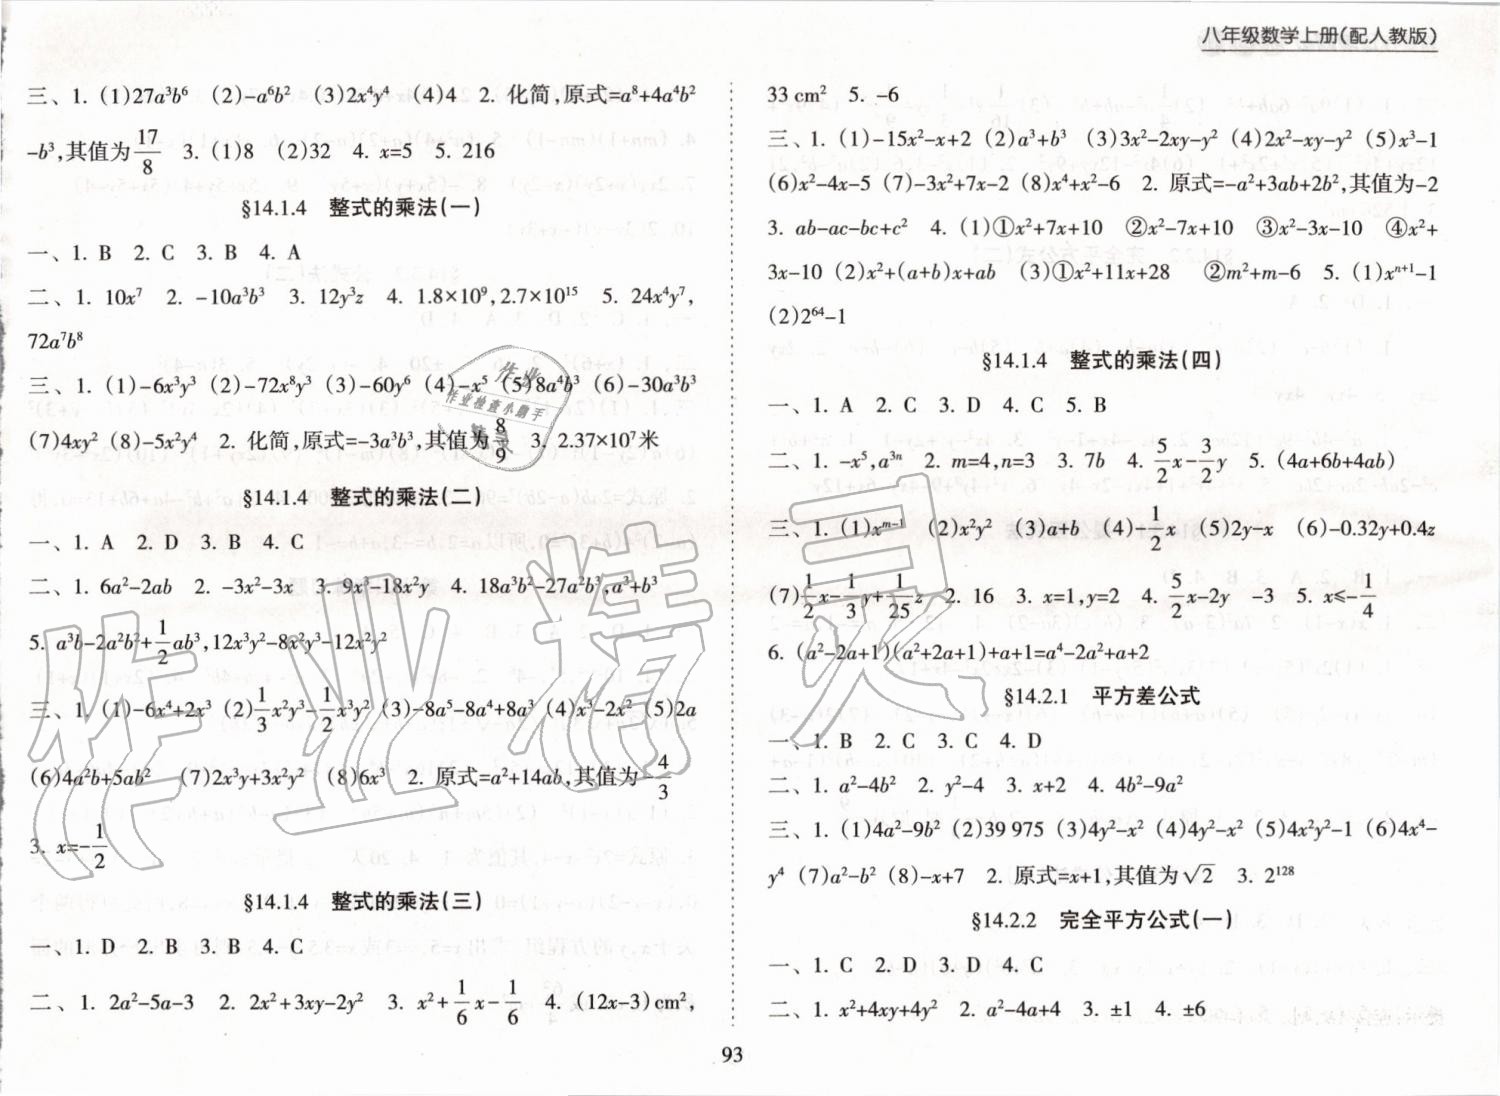 八年级数学上册(配人教版)
三、1. (1)27a³b⁶ (2)-a⁶b² (3)2x⁴y⁴ (4)4 2. 化简,原式=a⁸+4a⁴b²
-b³,其值为17/8 3. (1)8 (2)32 4. x=5 5. 216
§14.1.4 整式的乘法(一)
一、1. B 2. C 3. B 4. A
二、1. 10x⁷ 2. -10a³b³ 3. 12y³z 4. 1.8×10⁹,2.7×10¹⁵ 5. 24x⁴y⁷,
72a⁷b⁸
三、1. (1)-6x³y³ (2)-72x⁸y³ (3)-60y⁶ (4)-x⁵ (5)8a⁴b³ (6)-30a³b³
(7)4xy² (8)-5x²y⁴ 2. 化简,原式=-3a³b³,其值为8/9 3. 2.37×10⁷米
§14.1.4 整式的乘法(二)
一、1. A 2. D 3. B 4. C
二、1. 6a²-2ab 2. -3x²-3x 3. 9x³-18x²y 4. 18a³b²-27a²b³,a³+b³
5. a³b-2a²b²+1/2ab³,12x³y²-8x²y³-12x²y²
三、1. (1)-6x⁴+2x³ (2)1/3x²y³-1/2x³y² (3)-8a⁵-8a⁴+8a³ (4)x³-2x² (5)2a
(6)4a²b+5ab² (7)2x³y+3x²y² (8)6x³ 2. 原式=a²+14ab,其值为-4/3
3. x=-1/2
§14.1.4 整式的乘法(三)
一、1. D 2. B 3. B 4. C
二、1. 2a²-5a-3 2. 2x²+3xy-2y² 3. x²+1/6x-1/6 4. (12x-3)cm²,
33 cm² 5. -6
三、1. (1)-15x²-x+2 (2)a³+b³ (3)3x²-2xy-y² (4)2x²-xy-y² (5)x³-1
(6)x²-4x-5 (7)-3x²+7x-2 (8)x⁴+x²-6 2. 原式=-a²+3ab+2b²,其值为-2
3. ab-ac-bc+c² 4. (1)①x²+7x+10 ②x²-7x+10 ③x²-3x-10 ④x²+
3x-10 (2)x²+(a+b)x+ab (3)①x²+11x+28 ②m²+m-6 5. (1)xⁿ⁺¹-1
(2)2⁶⁴-1
§14.1.4 整式的乘法(四)
一、1. A 2. C 3. D 4. C 5. B
二、1. -x⁵,a³ⁿ 2. m=4,n=3 3. 7b 4. 5/2x-3/2y 5. (4a+6b+4ab)
三、1. (1)xᵐ⁻¹ (2)x²y² (3)a+b (4)+1/2x (5)2y-x (6)-0.32y+0.4z
(7)1/2x-1/3y+1/25z 2. 16 3. x=1,y=2 4. 5/2x-2y -3 5. x≤-1/4
6. (a²-2a+1)(a²+2a+1)+a+1=a⁴-2a²+a+2
§14.2.1 平方差公式
一、1. B 2. C 3. C 4. D
二、1. a²-4b² 2. y²-4 3. x+2 4. 4b²-9a²
三、1. (1)4a²-9b² (2)39 975 (3)4y²-x² (4)4y²-x² (5)4x²y²-1 (6)4x⁴-
y⁴ (7)a²-b² (8)-x+7 2. 原式=x+1,其值为√2 3. 2¹²⁸
§14.2.2 完全平方公式(一)
一、1. C 2. D 3. D 4. C
二、1. x²+4xy+4y² 2. a²-4a+4 3. ±1 4. ±6
93
作业
作业检查小助手
作业精灵